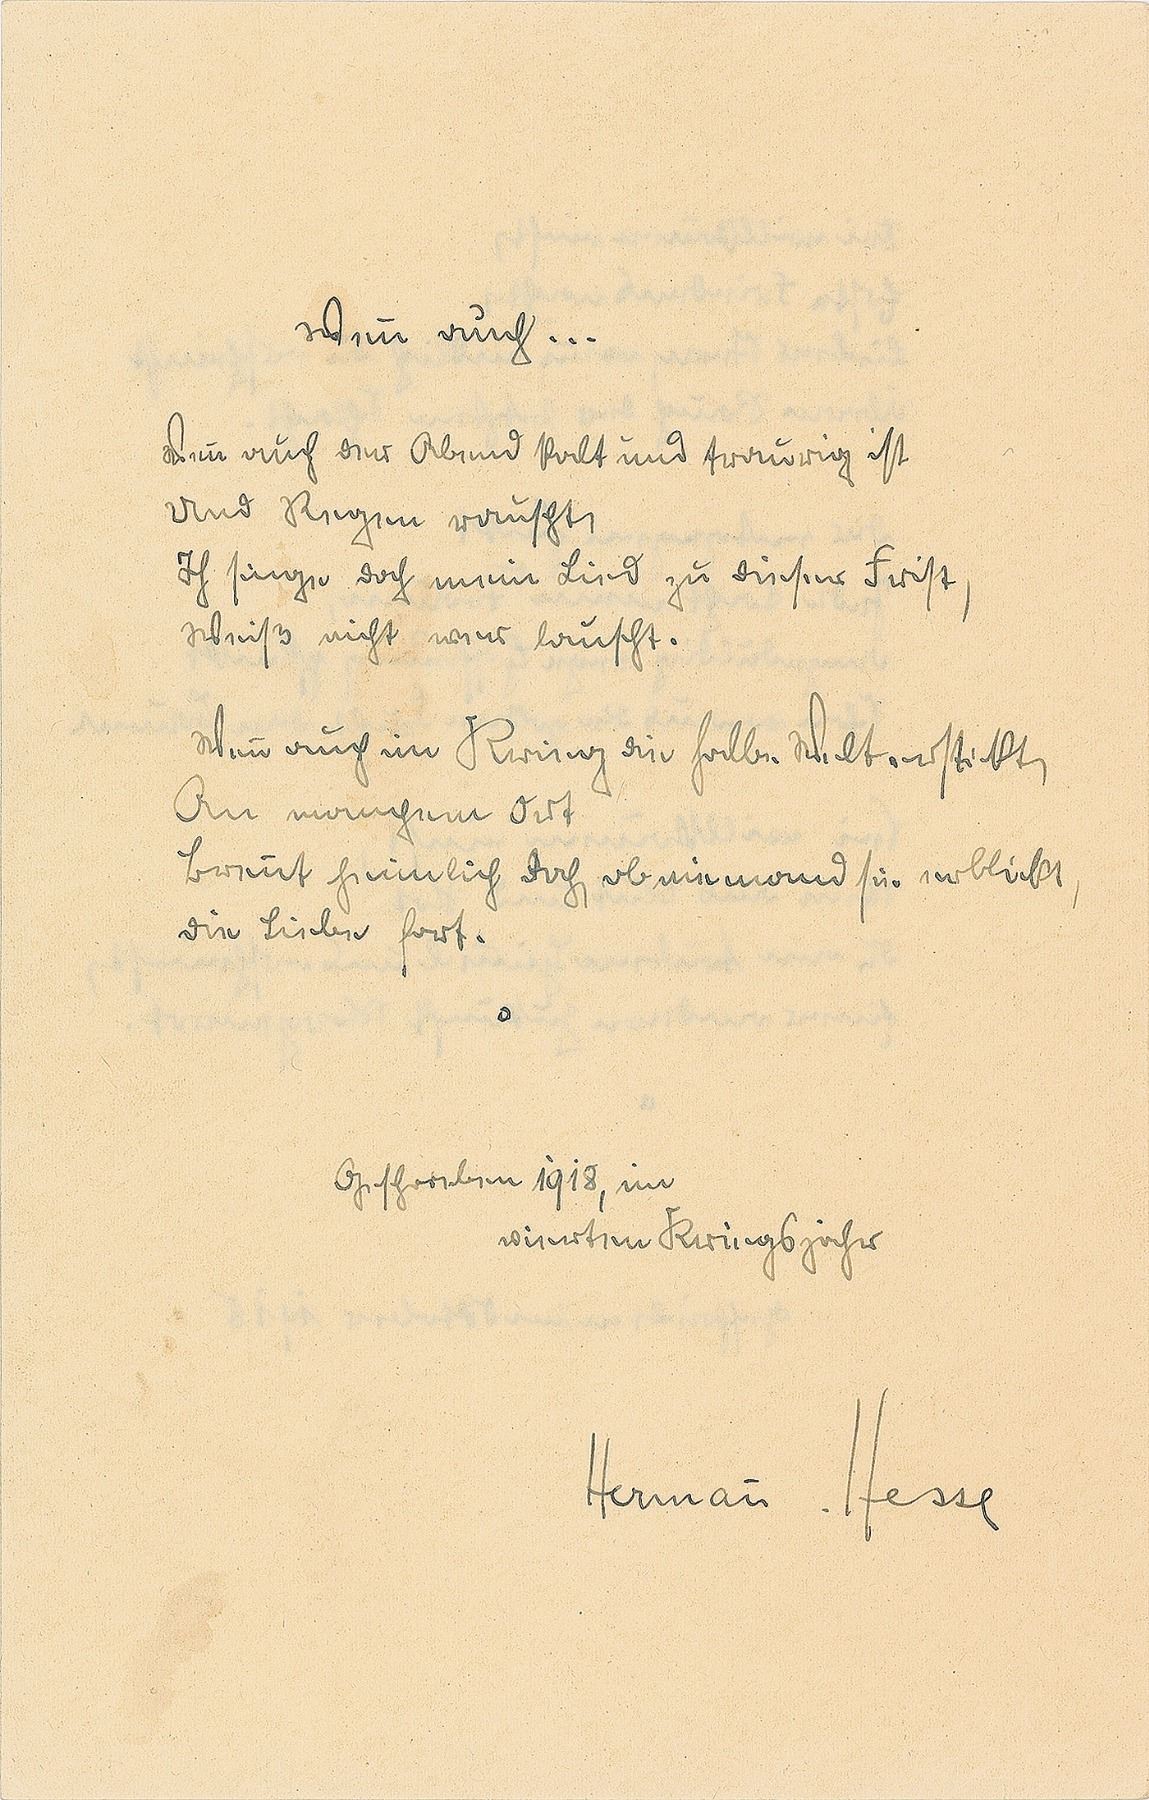 Weñ auch...
Weñ auch der Abend kalt und traurig ist
Und Regen rauscht,
Ich singe doch mein Lied zu dieser Frist,
Weiß nicht wer lauscht.
Weñ auch im Krieg die halbe Welt erstickt,
An manchem Ort
Breñt heimlich doch, ob niemand sie erblickt,
die Liebe fort.
Geschrieben 1918, im
vierten Kriegsjahr
Hermañ Hesse